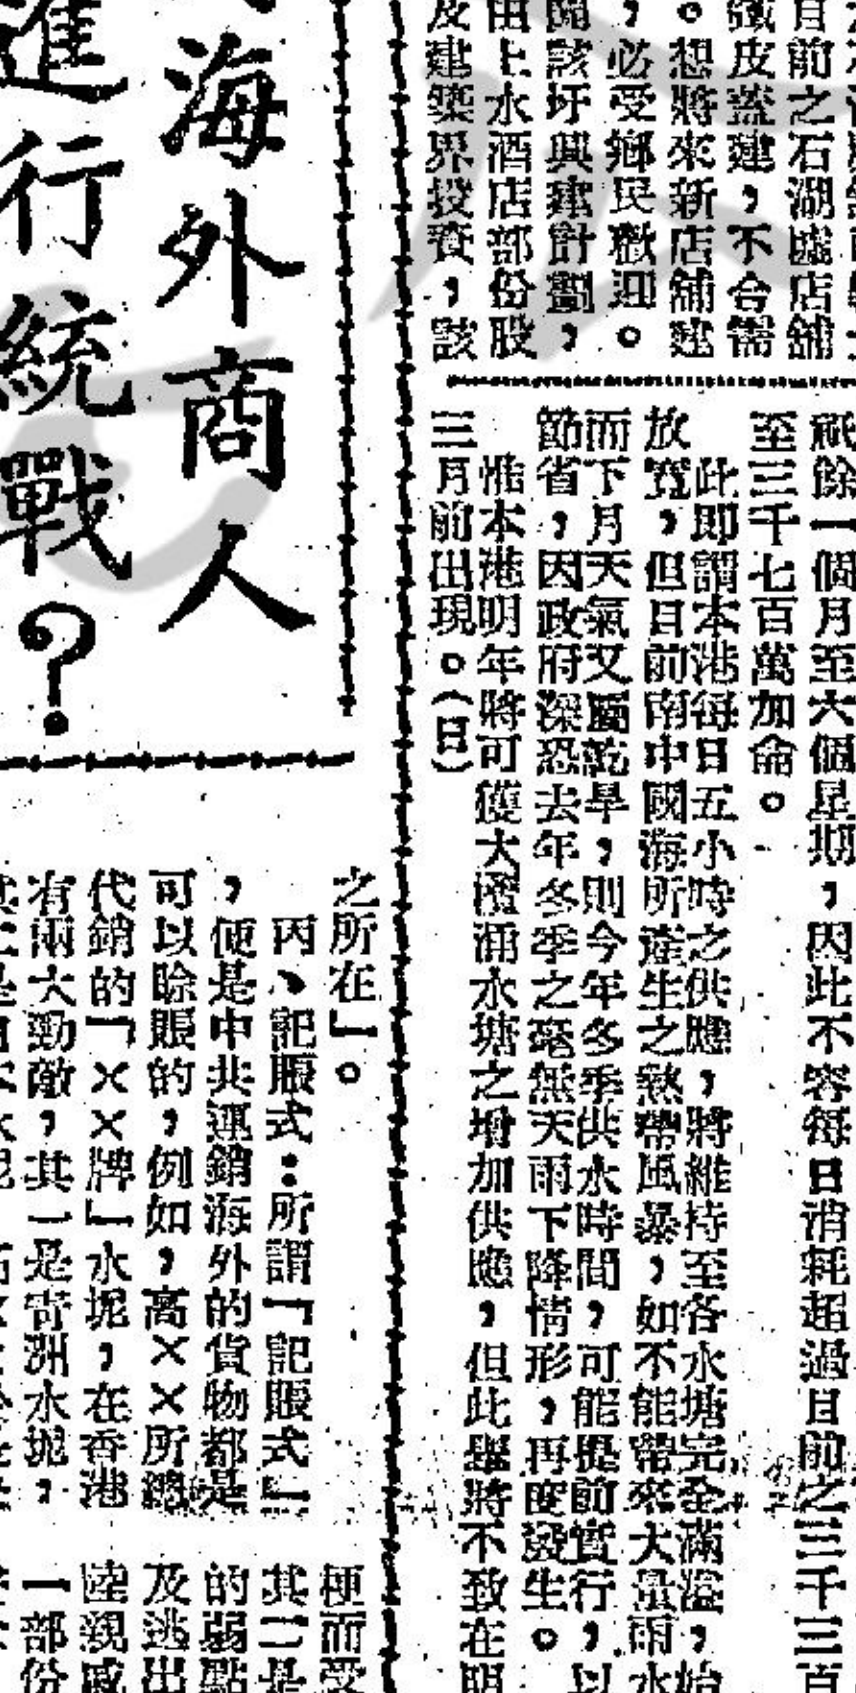 目前之石湖墟店舖
鐵皮蓋建，不合需
。想將來新店舖建
，必受鄉民歡迎。
該圩興建計劃，
由上水酒店部份股
及建築界投資，該
祇餘一個月至六個星期，因此不容每日消耗超過目前之三千三百
至三千七百萬加侖。
此即謂本港每日五小時之供應，將維持至各水塘完全滿溢，始
放寬，但目前南中國海所產生之熱帶風暴，如不能帶來大量雨水
而下月天氣又屬乾旱，則今年冬季供水時間，可能提前實行，以
節省，因政府深恐去年冬季之毫無天雨下降情形，再度發生。
惟本港明年將可獲大欖涌水塘之增加供應，但此舉將不致在明
三月前出現。（日）
海外商人
進行統戰？
之所在」。
丙、記賬式：所謂「記賬式」
，便是中共運銷海外的貨物都是
可以賒賬的，例如，高××所總
代銷的「××牌」水坭，在香港
有兩大勁敵，其一是青洲水坭，
梗而受
其二是
的弱點
及逃出
陸親戚
一部份